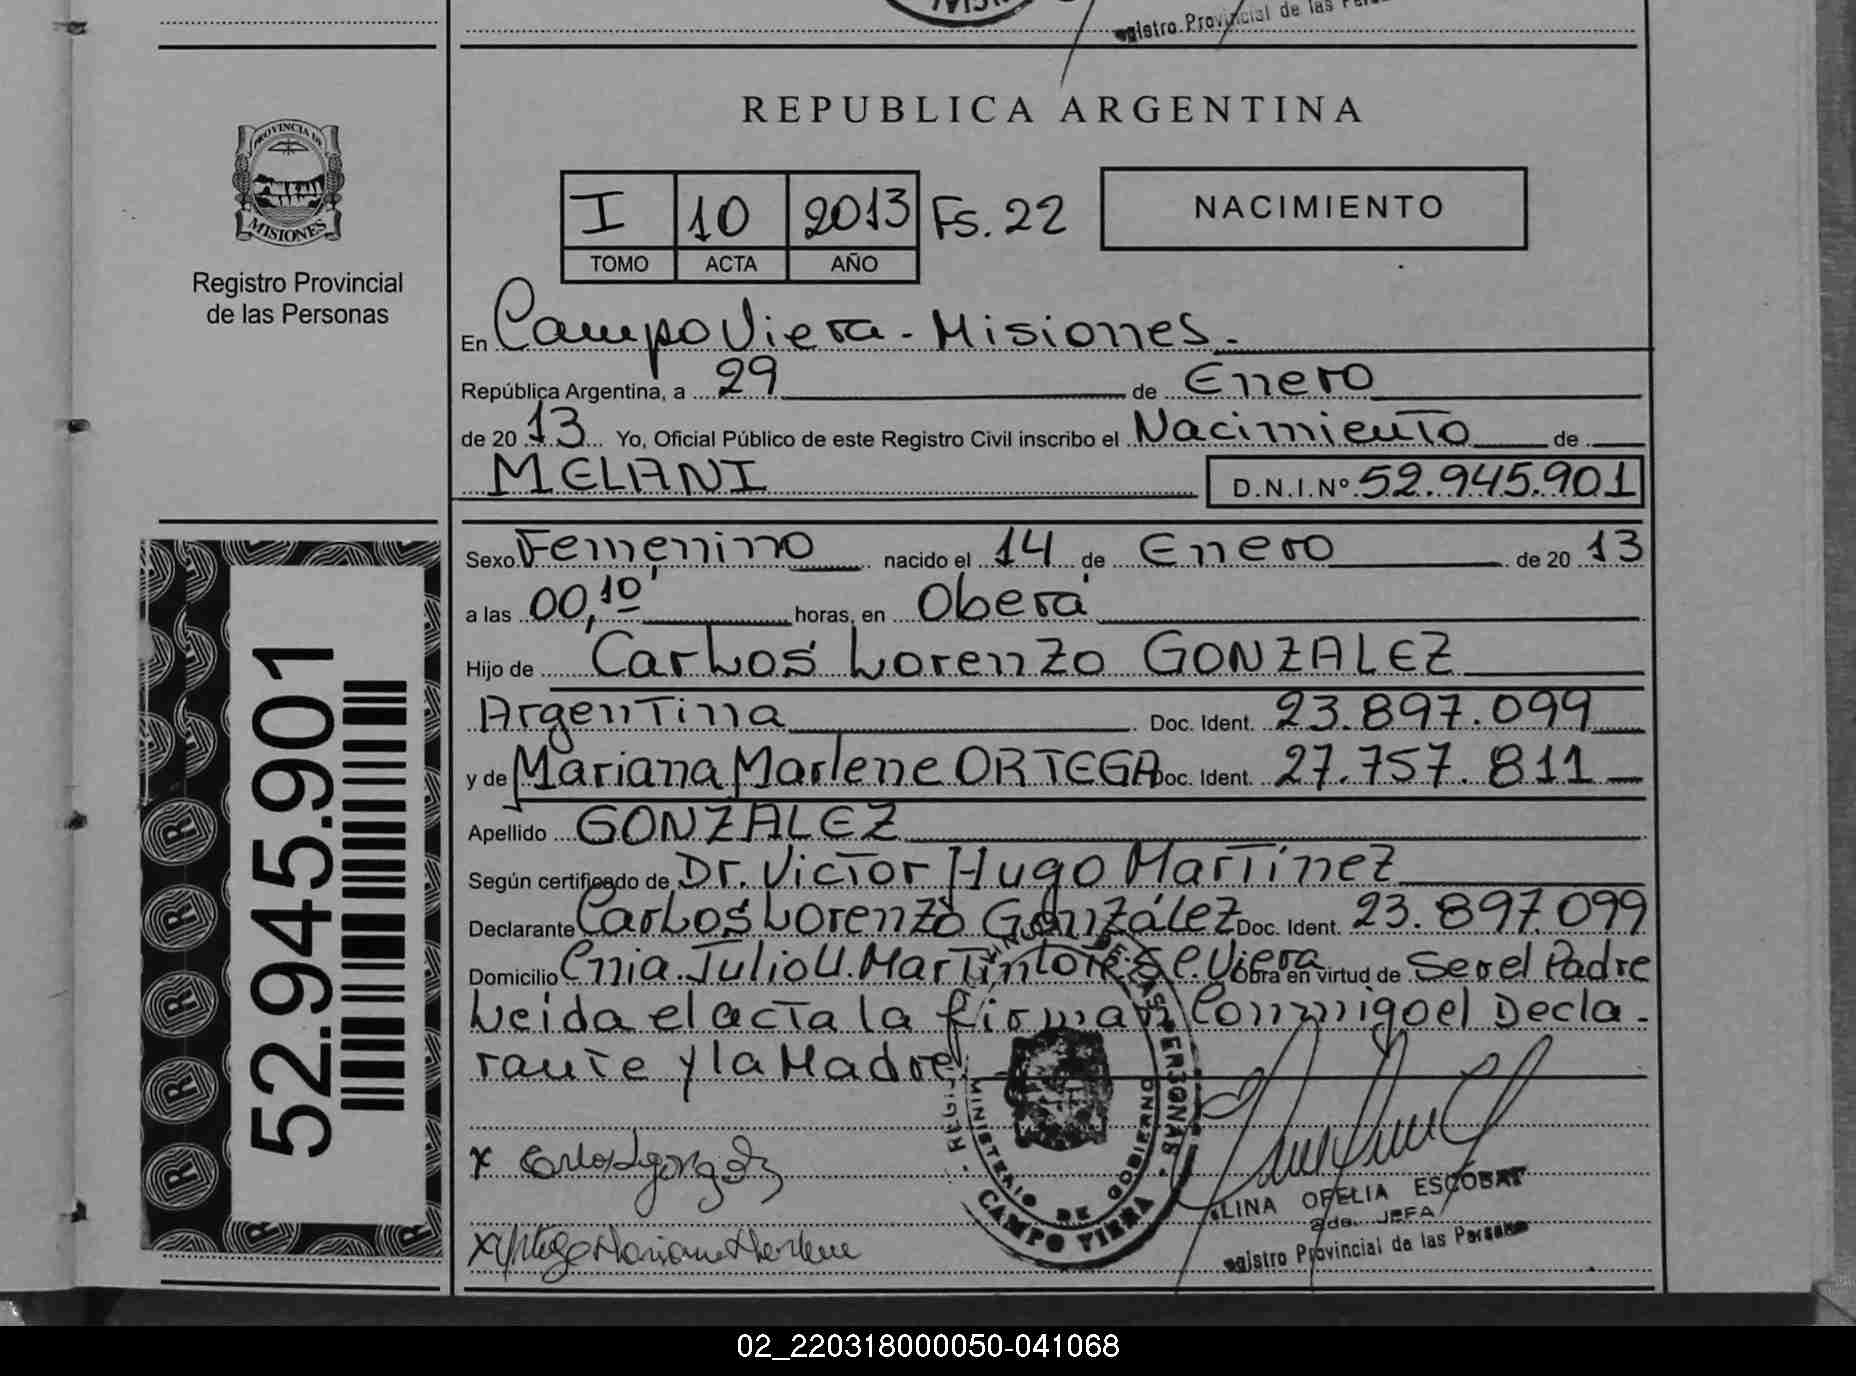 Registro Provincial de las Personas
REPUBLICA ARGENTINA
PROVINCIA DE
MISIONES
Registro Provincial
de las Personas
I 10 2013 Fs. 22
TOMO ACTA AÑO
NACIMIENTO
En Campo Viera - Misiones.
República Argentina, a 29 de Enero
de 20 13 Yo, Oficial Público de este Registro Civil inscribo el Nacimiento de
MELANI D.N.I.Nº 52.945.901
Sexo Femenino nacido el 14 de Enero de 20 13
a las 00,10' horas, en Oberá
Hijo de Carlos Lorenzo GONZALEZ
Argentina Doc. Ident. 23.897.099
y de Mariana Marlene ORTEGA Doc. Ident. 27.757.811
Apellido GONZALEZ
Según certificado de Dr. Victor Hugo Martínez
Declarante Carlos Lorenzo González Doc. Ident. 23.897.099
Domicilio Cnia. Julio U. Martin C. Viera Obra en virtud de Ser el Padre
Leida el acta la firman Conmigo el Decla-
rante y la Madre
52.945.901
MINISTERIO DE GOBIERNO
CAMPO VIERA
x Carlos L gonzalez
x Ortega Mariana Marlene
LINA OFELIA ESCOBAR
2da. JEFA
Registro Provincial de las Personas
02_220318000050-041068